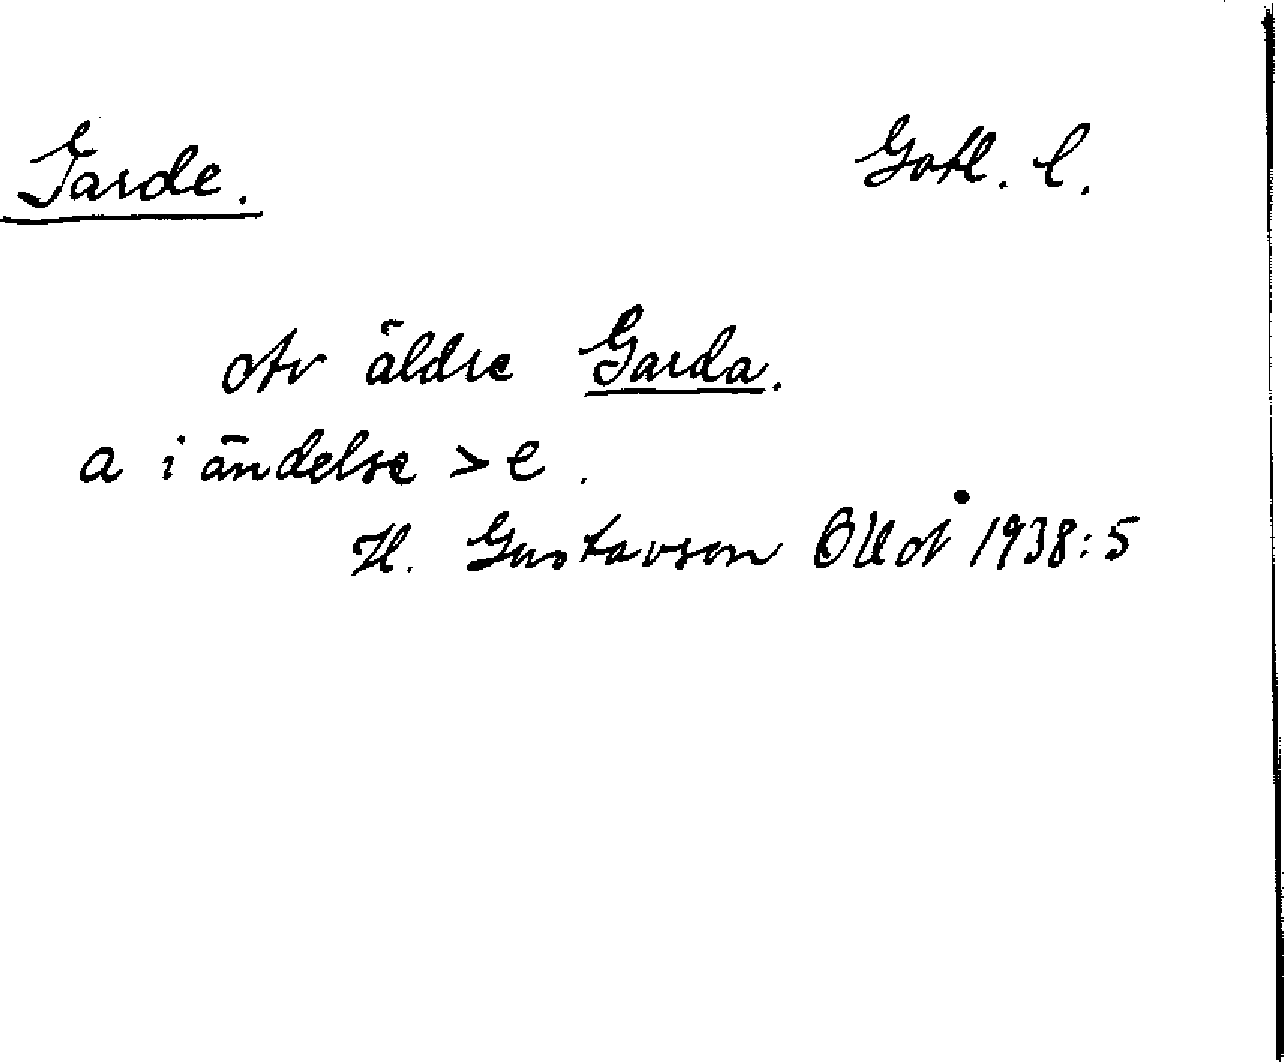 Garde. Gotl. l.
Av äldre Garda.
a i ändelse > e.
H. Gustavson OUÅ 1938:5